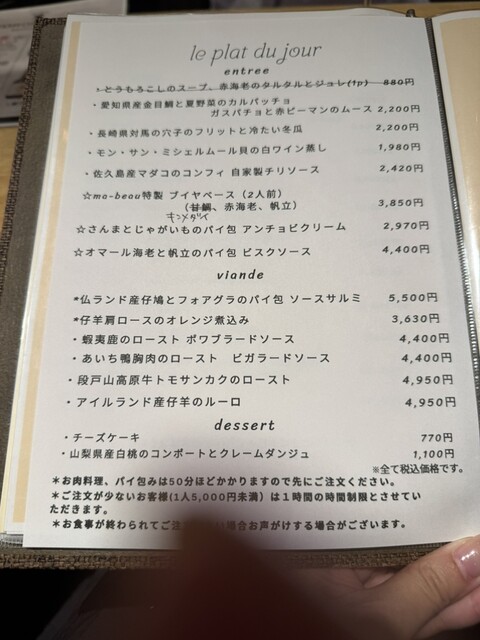 le plat du jour
entree
・とうもろこしのスープ、赤海老のタルタルとジュレ(1p) 880円
・愛知県産金目鯛と夏野菜のカルパッチョ
ガスパチョと赤ピーマンのムース 2,200円
・長崎県対馬の穴子のフリットと冷たい冬瓜 2,200円
・モン・サン・ミシェルムール貝の白ワイン蒸し 1,980円
・佐久島産マダコのコンフィ 自家製チリソース 2,420円
☆ma-beau特製 ブイヤベース（2人前）
（甘鯛、赤海老、帆立） 3,850円
キンメダイ
☆さんまとじゃがいものパイ包 アンチョビクリーム 2,970円
☆オマール海老と帆立のパイ包 ビスクソース 4,400円
viande
*仏ランド産仔鳩とフォアグラのパイ包 ソースサルミ 5,500円
*仔羊肩ロースのオレンジ煮込み 3,630円
・蝦夷鹿のロースト ポワブラードソース 4,400円
・あいち鴨胸肉のロースト ビガラードソース 4,400円
・段戸山高原牛トモサンカクのロースト 4,950円
・アイルランド産仔羊のルーロ 4,950円
dessert
・チーズケーキ 770円
・山梨県産白桃のコンポートとクレームダンジュ 1,100円
※全て税込価格です。
*お肉料理、パイ包みは50分ほどかかりますので先にご注文ください。
*ご注文が少ないお客様(1人5,000円未満）は１時間の時間制限とさせてい
ただきます。
*お食事が終わられてご注 い場合お声がけする場合がございます。